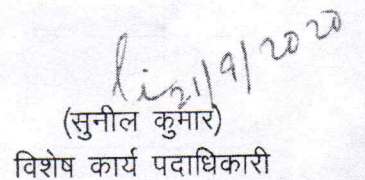 21/9/2020
(सुनील कुमार)
विशेष कार्य पदाधिकारी